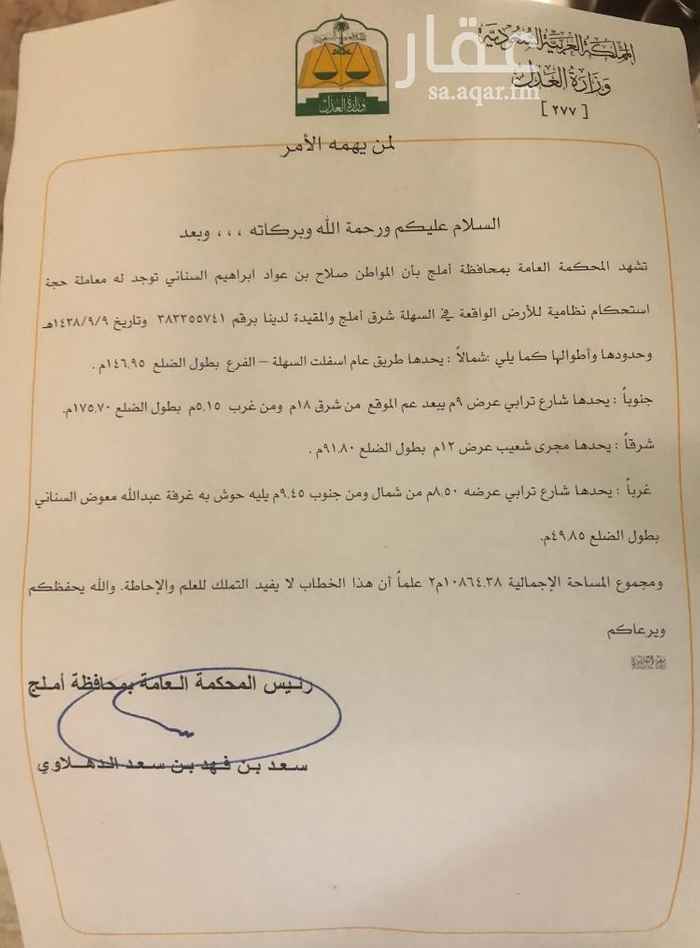 المملكة العربية السعودية
وزارة العدل
[ ٢٧٧ ]
وزارة العدل
عقار
sa.aqar.fm
لمن يهمه الأمر
السلام عليكم ورحمة الله وبركاته ،،، وبعد
تشهد المحكمة العامة بمحافظة أملج بأن المواطن صلاح بن عواد ابراهيم السناني توجد له معاملة حجة
استحكام نظامية للأرض الواقعة في السهلة شرق أملج والمقيدة لدينا برقم ٣٨٣٢٥٥٧٤١ وتاريخ ١٤٣٨/٩/٩هـ
وحدودها وأطوالها كما يلي :شمالاً : يحدها طريق عام اسفلت السهلة – الفرع بطول الضلع ١٤٦.٩٥م .
جنوباً : يحدها شارع ترابي عرض ٩م يبعد عم الموقع من شرق ١٨م ومن غرب ٥.١٥م بطول الضلع ١٧٥.٧٠م.
شرقاً : يحدها مجرى شعيب عرض ١٢م بطول الضلع ٩١.٨٠م .
غرباً : يحدها شارع ترابي عرضه ٨.٥٠م من شمال ومن جنوب ٩.٤٥م يليه حوش به غرفة عبدالله معوض السناني
بطول الضلع ٤٩.٨٥م.
ومجموع المساحة الإجمالية ١٠٨٦٤.٣٨م٢ علماً أن هذا الخطاب لا يفيد التملك للعلم والإحاطة. والله يحفظكم
ويرعاكم
رئيس المحكمة العامة بمحافظة أملج
سعد بن فهد بن سعد الدهلاوي